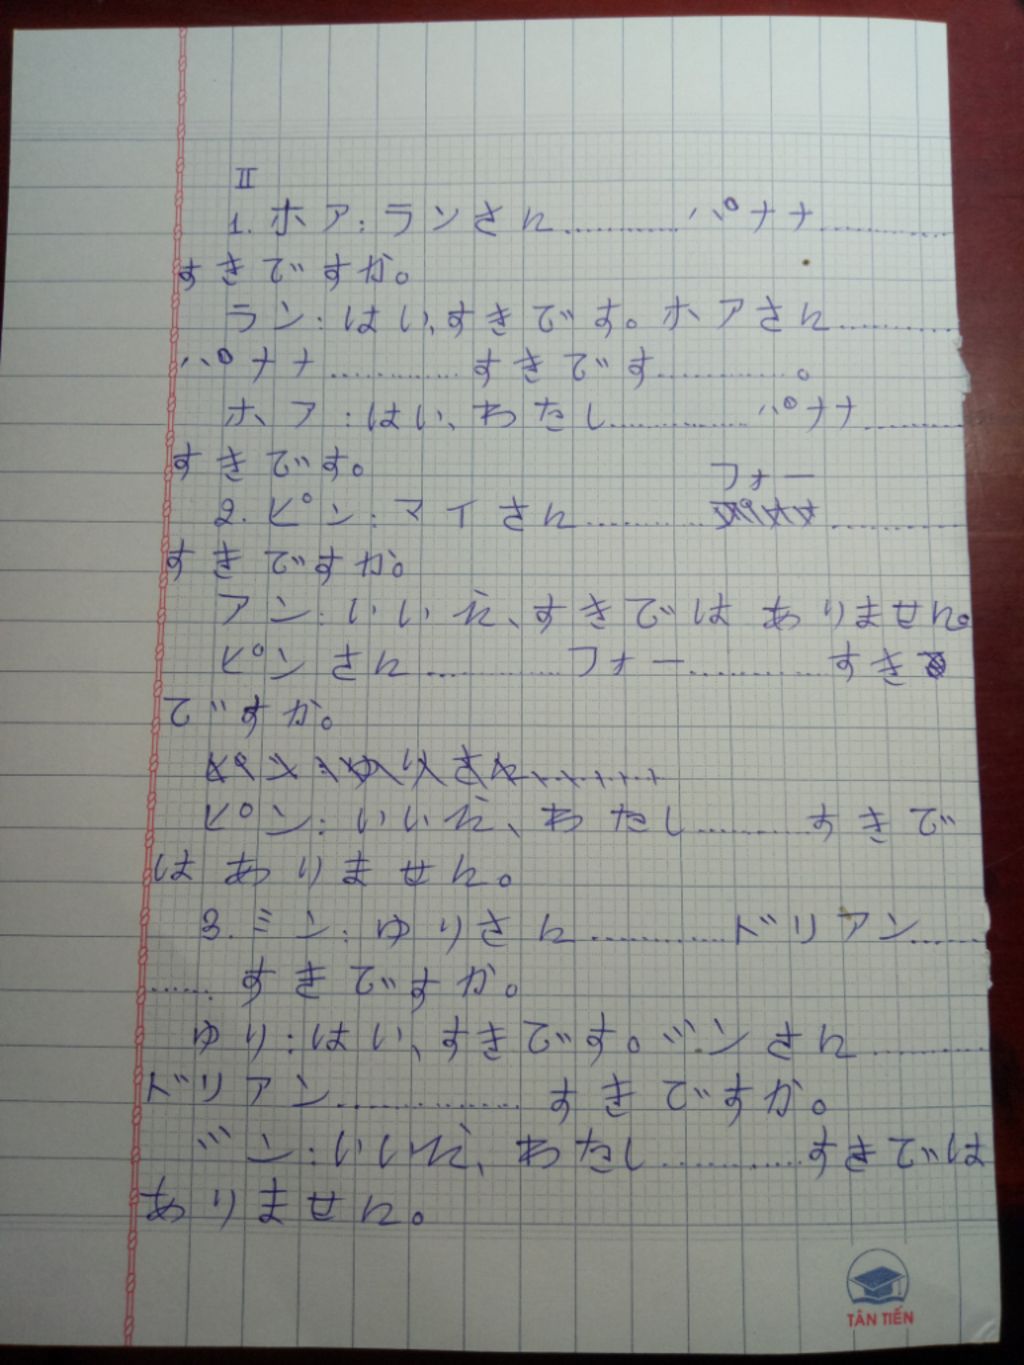 II
1. ホア:ランさん............パナナ............
すきですか。
ラン:はい、すきです。ホアさん............
パナナ............すきです............。
ホア:はい、わたし............パナナ............
すきです。
フォー
2. ペン:マイさん............
すきですか。
アン:いいえ、すきではありません。
ペンさん............フォー............すき
ですか。
ペン:いいえ、わたし............すきで
はありません。
3. ミン:ゆりさん............ドリアン......
......すきですか。
ゆり:はい、すきです。ミンさん............
ドリアン............すきですか。
ミン:いいえ、わたし............すきでは
ありません。
TÂN TIẾN